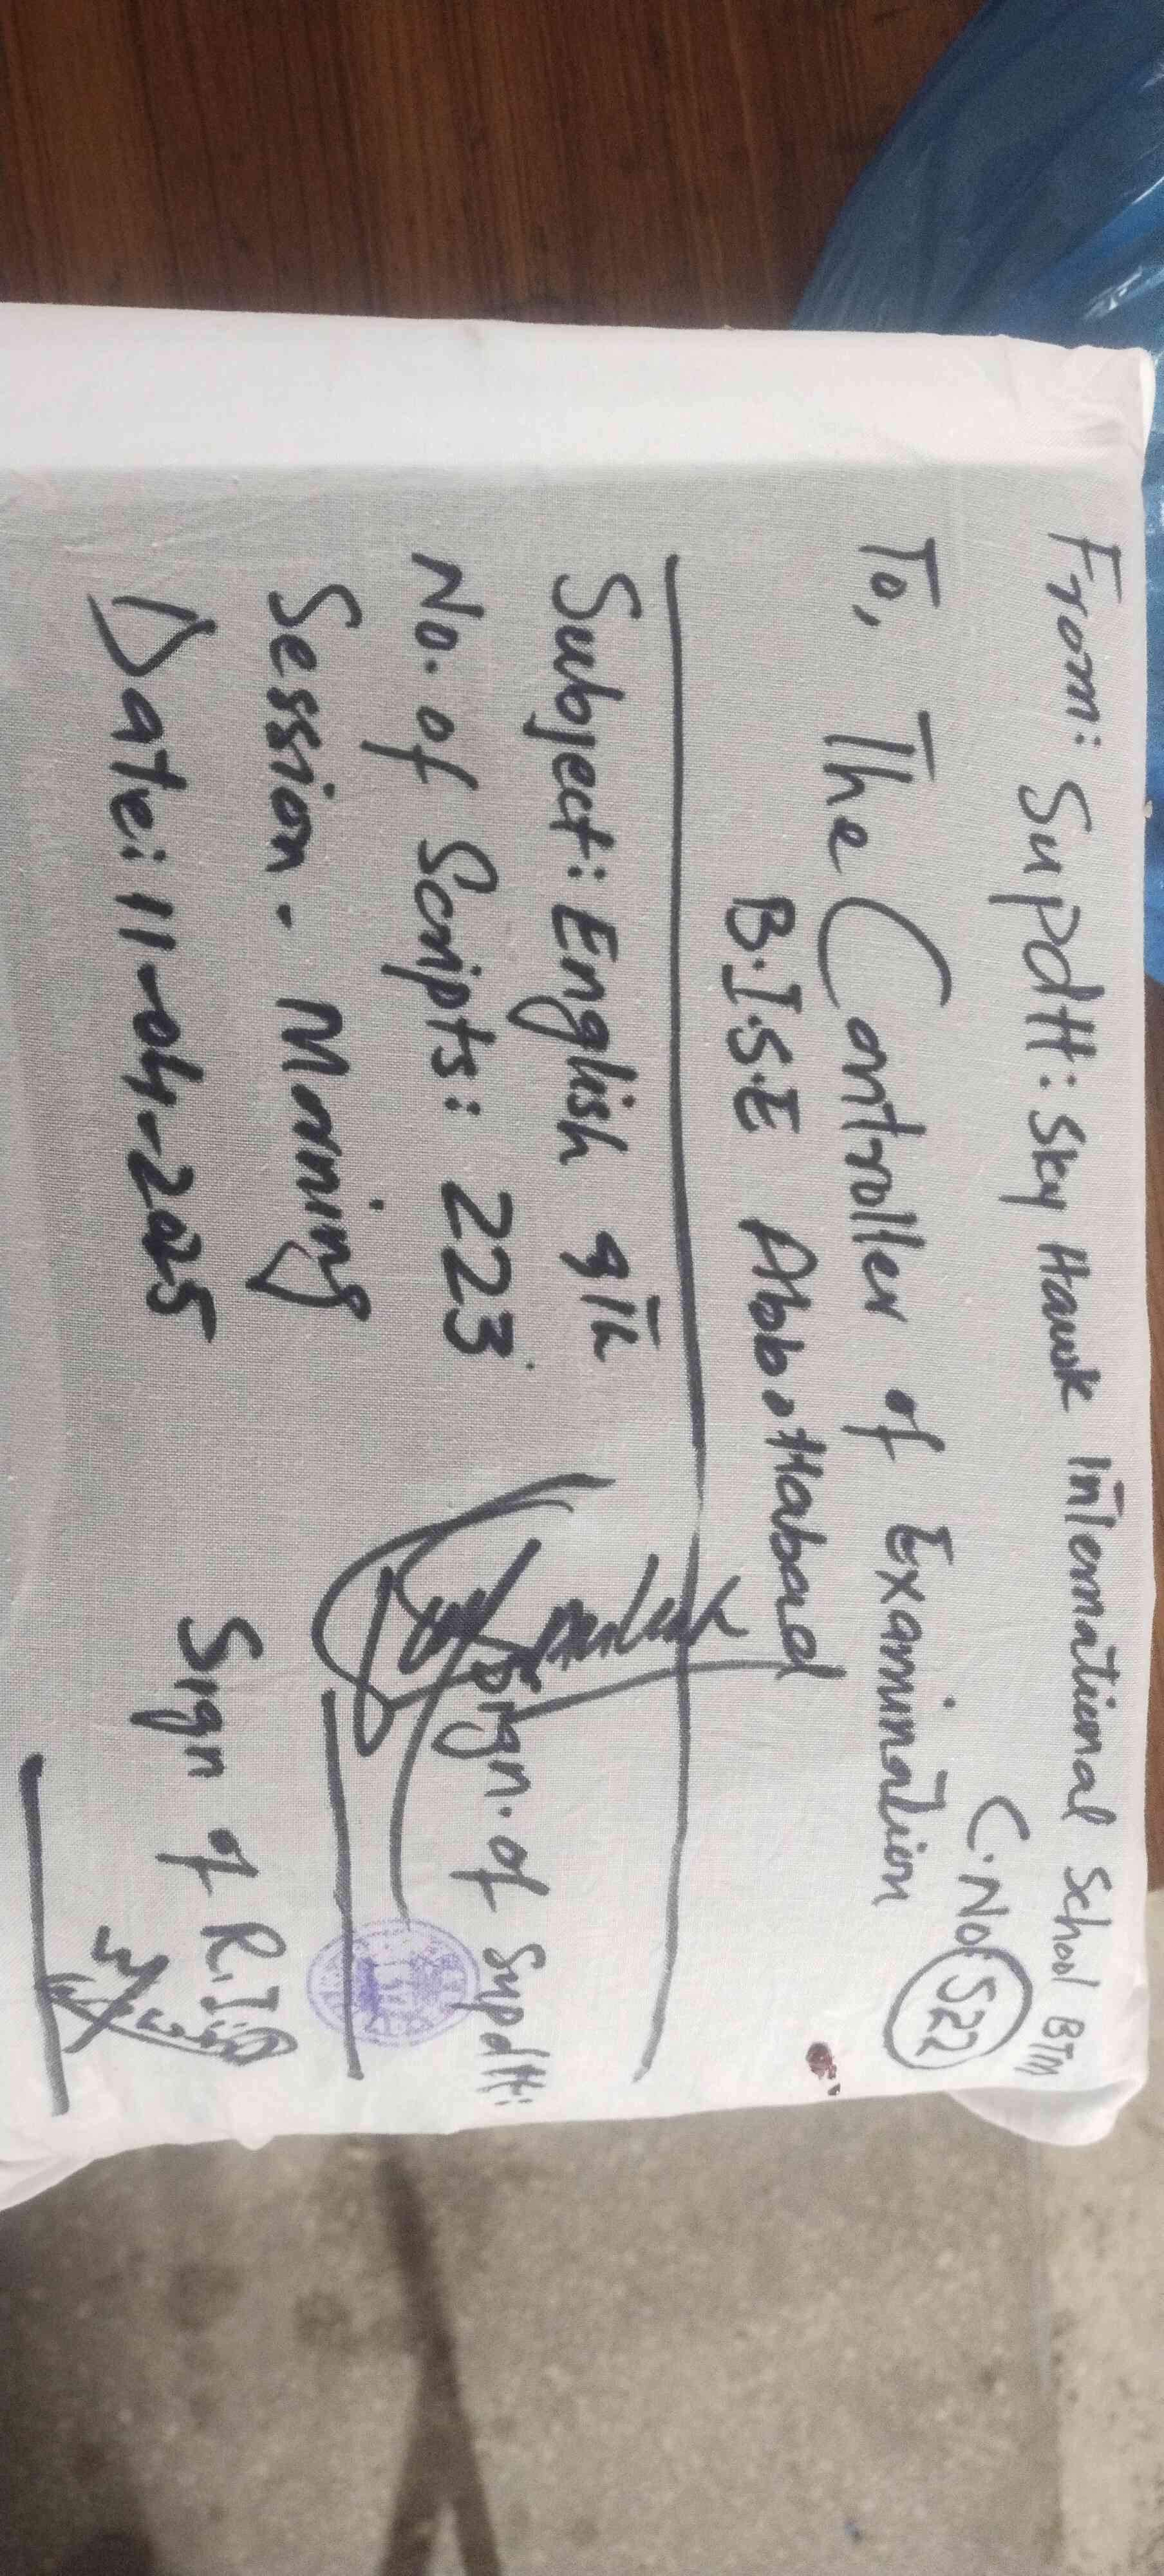 From: Supdtt: Sky Hawk International School BTM
C.No 522
To, The Controller of Examination
B.I.S.E Abbottabad
Subject: English 9th
No. of Scripts: 223
Session. Morning
Date: 11-04-2025
Sign. of Supdtt:
Sign of R.I